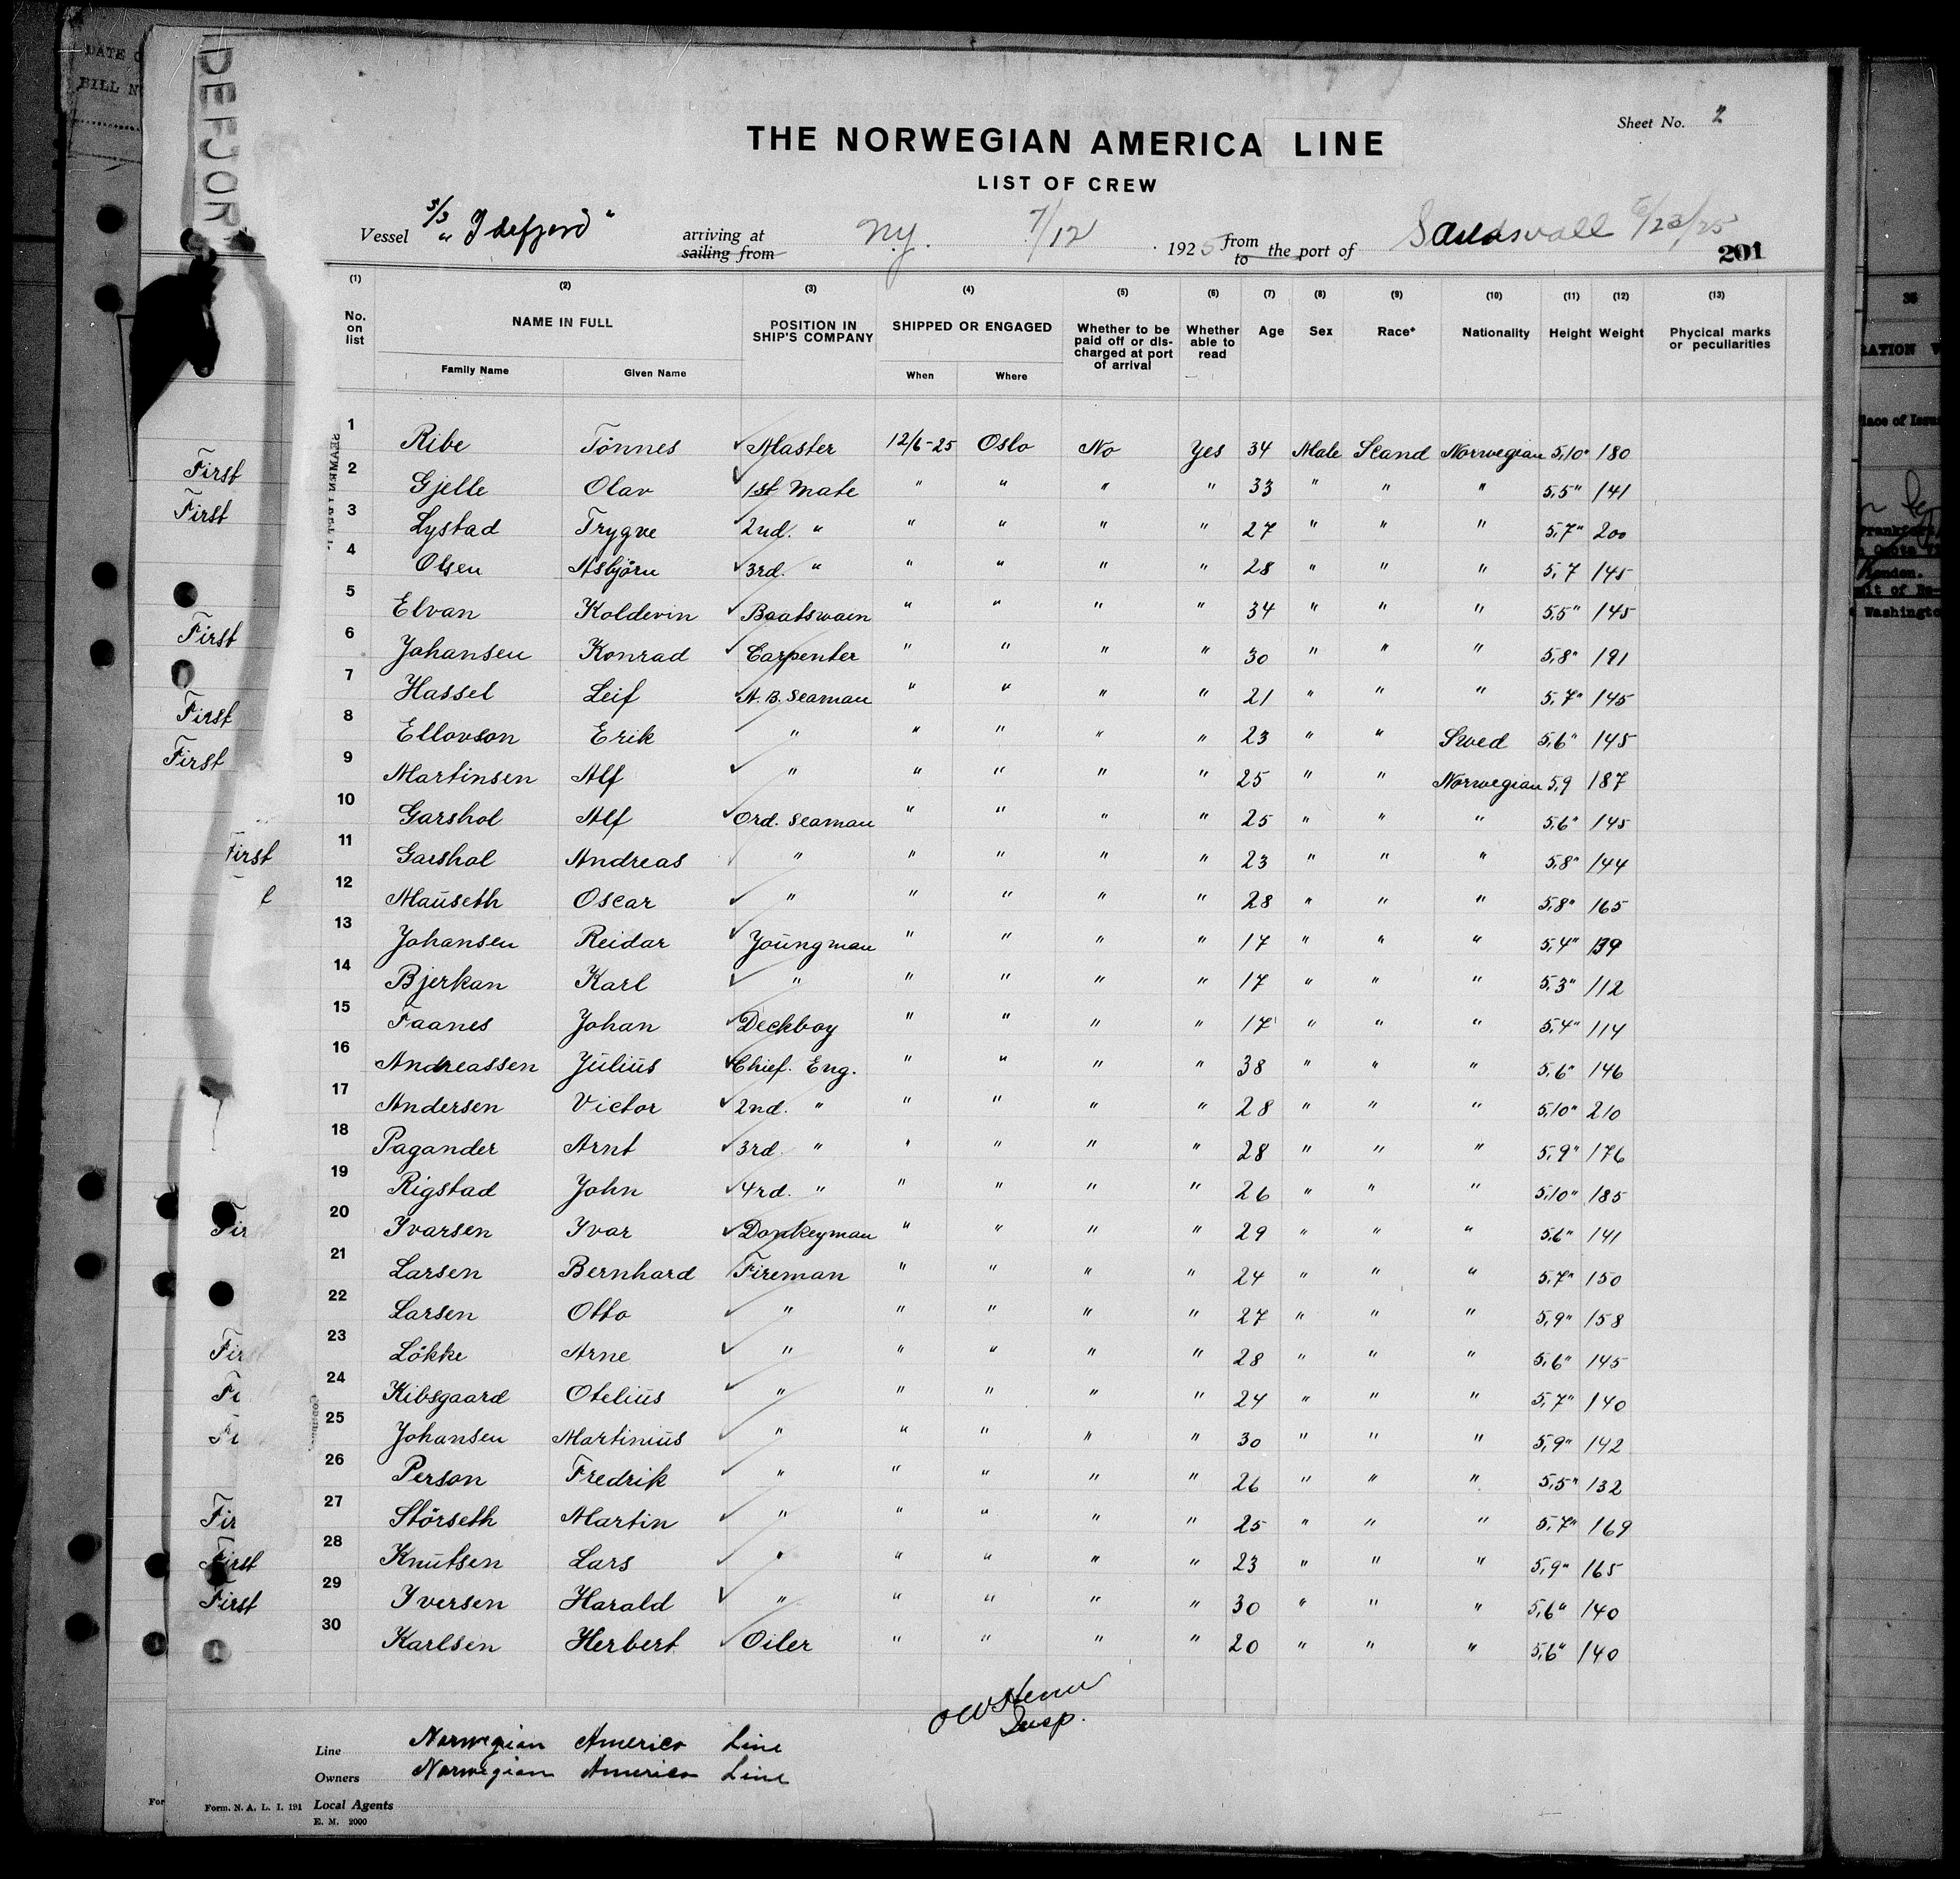 DEFJOR
Sheet No. 2
THE NORWEGIAN AMERICA LINE
LIST OF CREW
Vessel S/S "Idefjord" arriving at sailing from N.Y. 7/12 1925 from to the port of Sundsvall 6/23/25
201
(1) (2) (3) (4) (5) (6) (7) (8) (9) (10) (11) (12) (13)
No. on list NAME IN FULL POSITION IN SHIP'S COMPANY SHIPPED OR ENGAGED Whether to be paid off or discharged at port of arrival Whether able to read Age Sex Race* Nationality Height Weight Phycical marks or peculiarities
Family Name Given Name When Where
1 Ribe Tönnes Master 12/6-25 Oslo No Yes 34 Male Scand Norwegian 5,10" 180
2 Gjelle Olav 1st Mate " " " " 33 " " " 5,5" 141
3 Lystad Trygve 2nd. " " " " " 27 " " " 5,7" 200
4 Olsen Asbjörn 3rd. " " " " " 28 " " " 5,7 145
5 Elvan Koldevin Boatswain " " " " 34 " " " 5,5" 145
6 Johansen Konrad Carpenter " " " " 30 " " " 5,8" 191
7 Hassel Leif A.B. Seaman " " " " 21 " " " 5,7" 145
8 Ellovson Erik " " " " " 23 " " Swed 5,6" 145
9 Martinsen Alf " " " " " 25 " " Norwegian 5,9 187
10 Garshol Alf Ord. Seaman " " " " 25 " " " 5,6" 145
11 Garshol Andreas " " " " " 23 " " " 5,8" 144
12 Mauseth Oscar " " " " " 28 " " " 5,8" 165
13 Johansen Reidar Youngman " " " " 17 " " " 5,4" 139
14 Bjerkan Karl " " " " " 17 " " " 5,3" 112
15 Faanes Johan Deckboy " " " " 17 " " " 5,4" 114
16 Andreassen Julius Chief. Eng. " " " " 38 " " " 5,6" 146
17 Andersen Victor 2nd. " " " " " 28 " " " 5,10" 210
18 Pagander Arnt 3rd. " " " " " 28 " " " 5,9" 176
19 Rigstad John 4rd. " " " " " 26 " " " 5,10" 185
20 Ivarsen Ivar Donkeyman " " " " 29 " " " 5,6" 141
21 Larsen Bernhard Fireman " " " " 24 " " " 5,7" 150
22 Larsen Otto " " " " " 27 " " " 5,9" 158
23 Lökke Arne " " " " " 28 " " " 5,6" 145
24 Kibsgaard Otelius " " " " " 24 " " " 5,7" 140
25 Johansen Martinius " " " " " 30 " " " 5,9" 142
26 Person Fredrik " " " " " 26 " " " 5,5" 132
27 Störseth Martin " " " " " 25 " " " 5,7" 169
28 Knutsen Lars " " " " " 23 " " " 5,9" 165
29 Iversen Harald " " " " " 30 " " " 5,6" 140
30 Karlsen Herbert Oiler " " " " 20 " " " 5,6" 140
Insp.
Line Norwegian America Line
Owners Norwegian America Line
Form. N. A. L. I. 191 Local Agents
E. M. 2000
DATE
BILL
First
First
First
First
First
First
First
First
35
Place of Issu
Washington